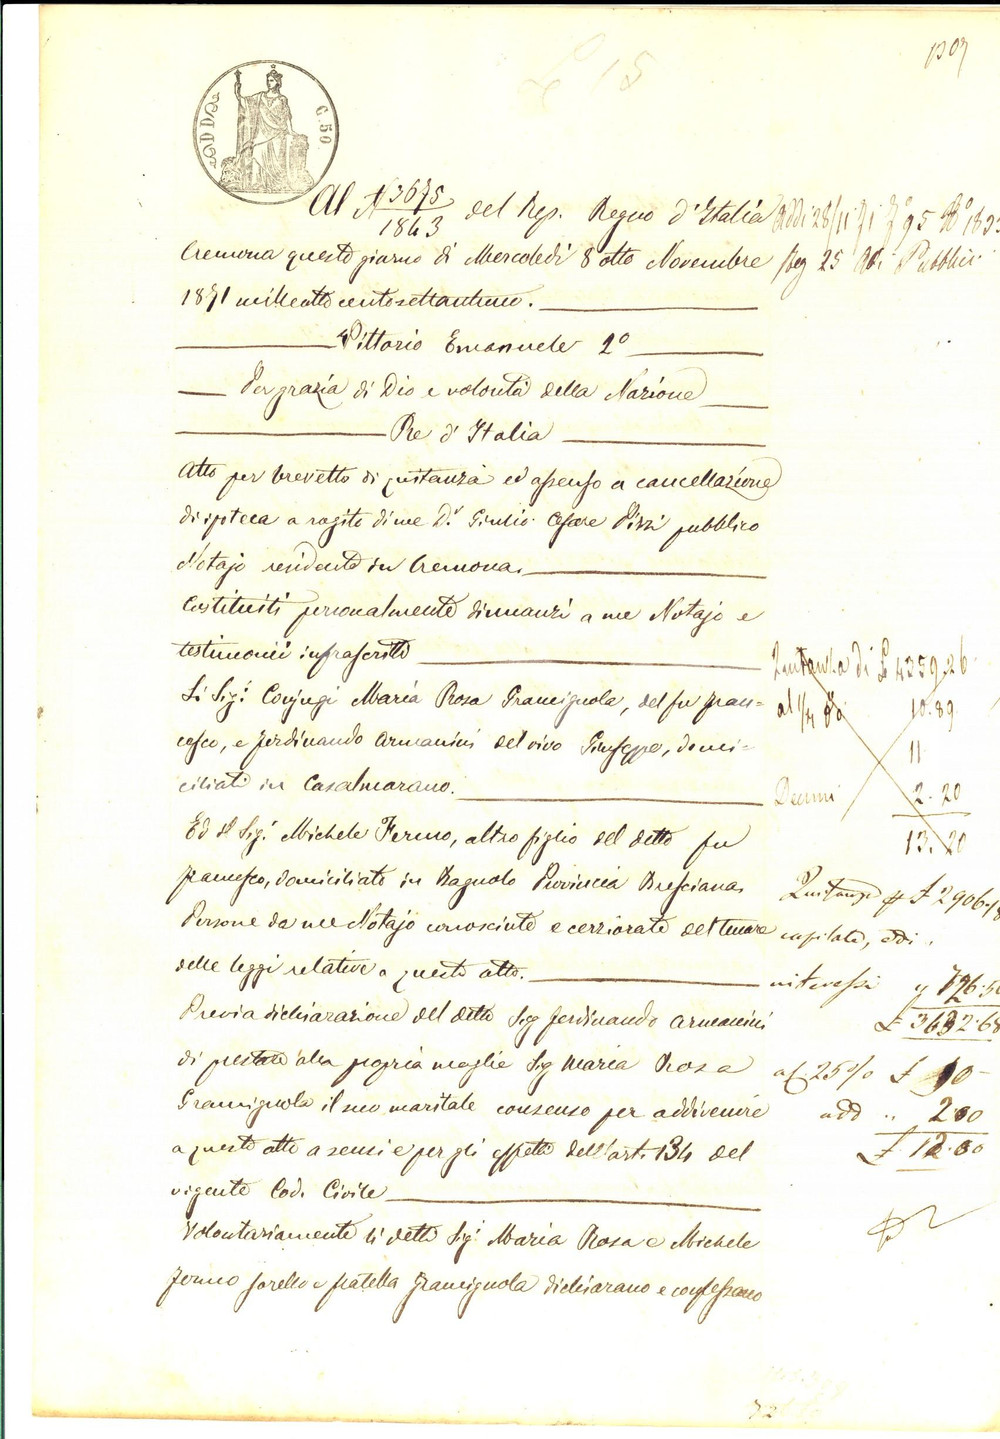 1309
L 15
C. 50
Al N 3675/1843 del Rep. Regno d'Italia
Cremona questo giorno di Mercoledì 8 otto Novembre
1871 mille otto cento settantuno.
Vittorio Emanuele 2º
Per grazia di Dio e volontà della Nazione
Re d'Italia
Atto per brevetto di quitanza ed assenso a cancellazione
di ipoteca a rogito di me D.r Giulio Cesare Pizzi pubblico
Notajo residente in Cremona.
Costituiti personalmente dinnanzi a me Notajo e
testimonii infrascritti
Li Sig.i Conjugi Maria Rosa Gramignola, del fu Fran=
cesco, e Ferdinando Armanini del vivo Giuseppe, domi=
ciliati in Casalmorano.
Ed il Sig.r Michele Fermo, altro figlio del detto fu
Francesco, domiciliato in Bagnolo Provincia Bresciana.
Persone da me Notajo conosciute e cerziorate del tenore
delle leggi relative a questo atto.
Previa dichiarazione del detto Sig Ferdinando Armanini
di prestare alla propria moglie Sig Maria Rosa
Gramignola il suo maritale consenso per addivenire
a questo atto a sensi e per gli effetti dell'art. 134 del
vigente Cod. Civile
Volontariamente li detti Sig.i Maria Rosa e Michele
Fermo sorella e fratello Gramignola dichiarano e confessano
Addi 28/11 71
Reg 25 Atti Pubblici
Quitanza di £ 4359.26
al 1/4 %
10.89
11
Decimi 2.20
13.20
Quitanza £ 2906.18
capitale, ed
interessi " 726.50
£ 3632.68
al 25% £ 10
add " 2.00
£ 12.00